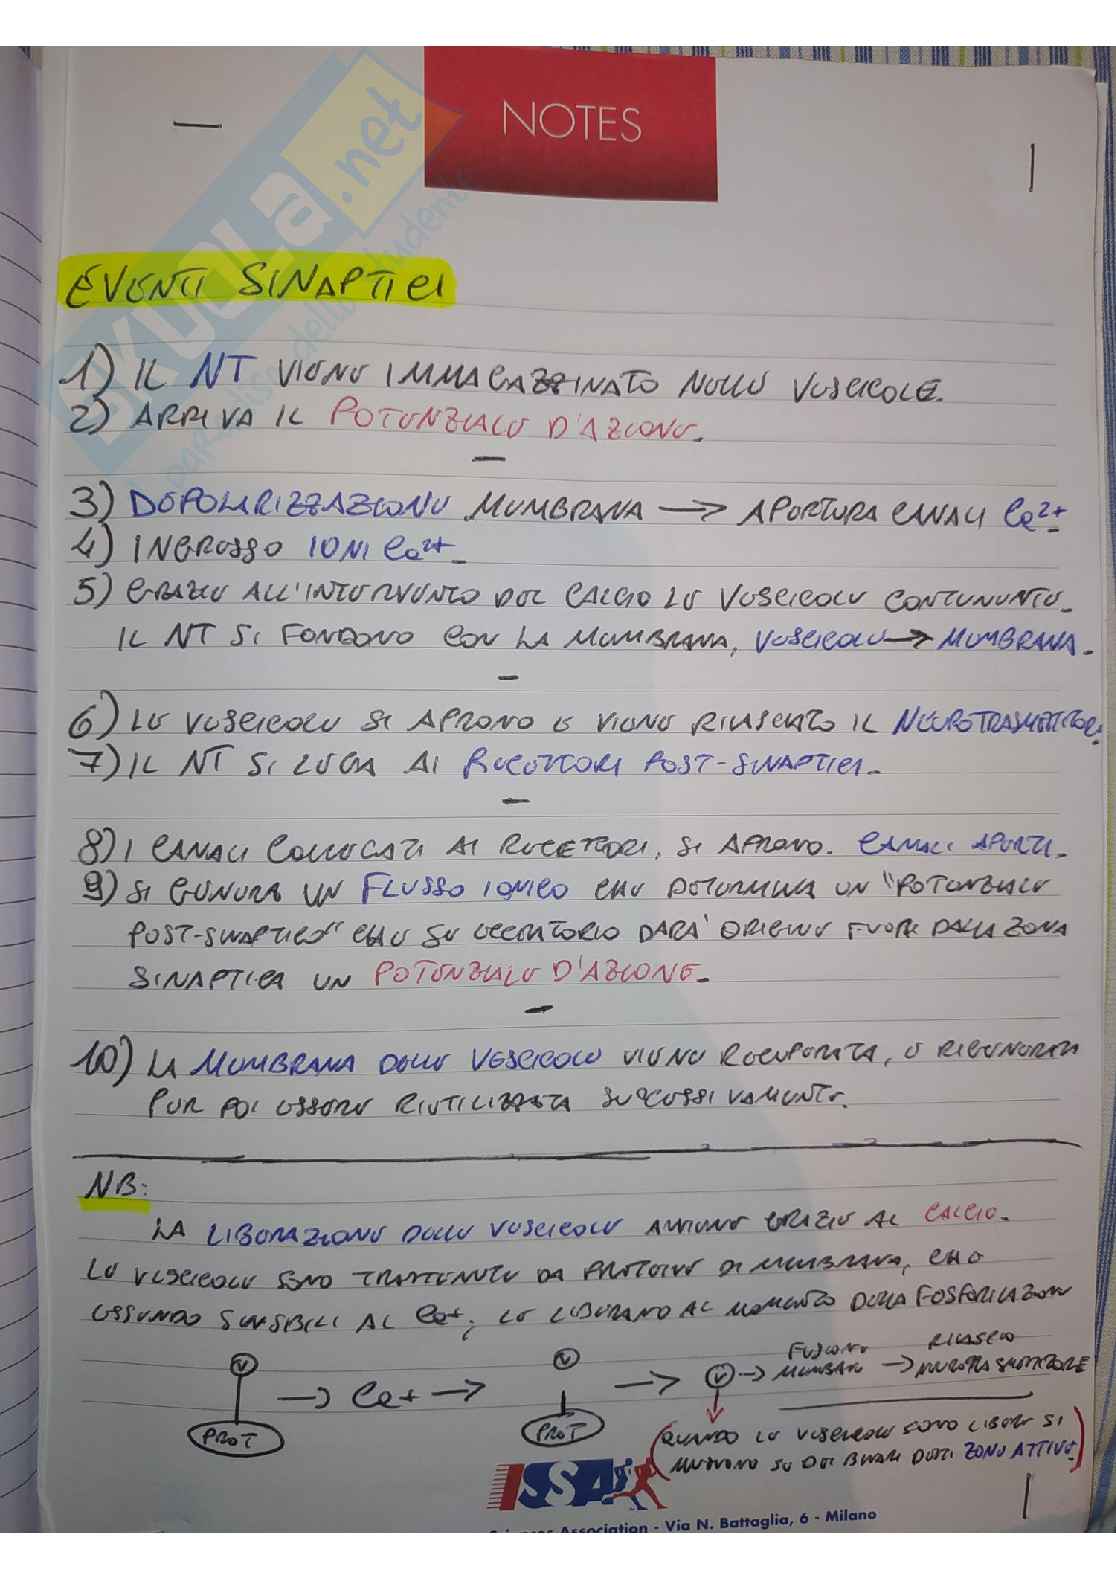 NOTES
SKUOLA.net
EVENTI SINAPTICI
1) IL NT VIENE IMMAGAZZINATO NELLE VESCICOLE.
2) ARRIVA IL POTENZIALE D'AZIONE.
3) DEPOLARIZZAZIONE MEMBRANA → APERTURA CANALI Ca²⁺
4) INGRESSO IONI Ca²⁺
5) GRAZIE ALL'INTERVENTO DEL CALCIO LE VESCICOLE CONTENENTE
IL NT SI FONDONO CON LA MEMBRANA, VESCICOLE → MEMBRANA.
6) LE VESCICOLE SI APRONO E VIENE RILASCIATO IL NEUROTRASMETTITORE.
7) IL NT SI LEGA AI RECETTORI POST-SINAPTICI.
8) I CANALI COLLOCATI AI RECETTORI, SI APRONO. CANALI APERTI.
9) SI GENERA UN FLUSSO IONICO CHE DETERMINA UN "POTENZIALE
POST-SINAPTICO" CHE SE ECCITATORIO DARA' ORIGINE FUORI DALLA ZONA
SINAPTICA UN POTENZIALE D'AZIONE.
10) LA MEMBRANA DELLE VESCICOLE VIENE RECUPERATA, E RIGENERATA
PER POI ESSERE RIUTILIZZATA SUCCESSIVAMENTE.
NB:
LA LIBERAZIONE DELLE VESCICOLE AVVIENE GRAZIE AL CALCIO.
LE VESCICOLE SONO TRATTENUTE DA PROTEINE DI MEMBRANA, CHE
ESSENDO SENSIBILI AL Ca+, LE LIBERANO AL MOMENTO DELLA FOSFORILAZIONE
V → Ca+ → V → V → FUSIONE MEMBRANE → RILASCIO NEUROTRASMETTITORE
PROT PROT
(QUANDO LE VESCICOLE SONO LIBERE SI
MUOVONO SU DEI BINARI DETTI ZONE ATTIVE.)
ISSA
Sciences Association - Via N. Battaglia, 6 - Milano